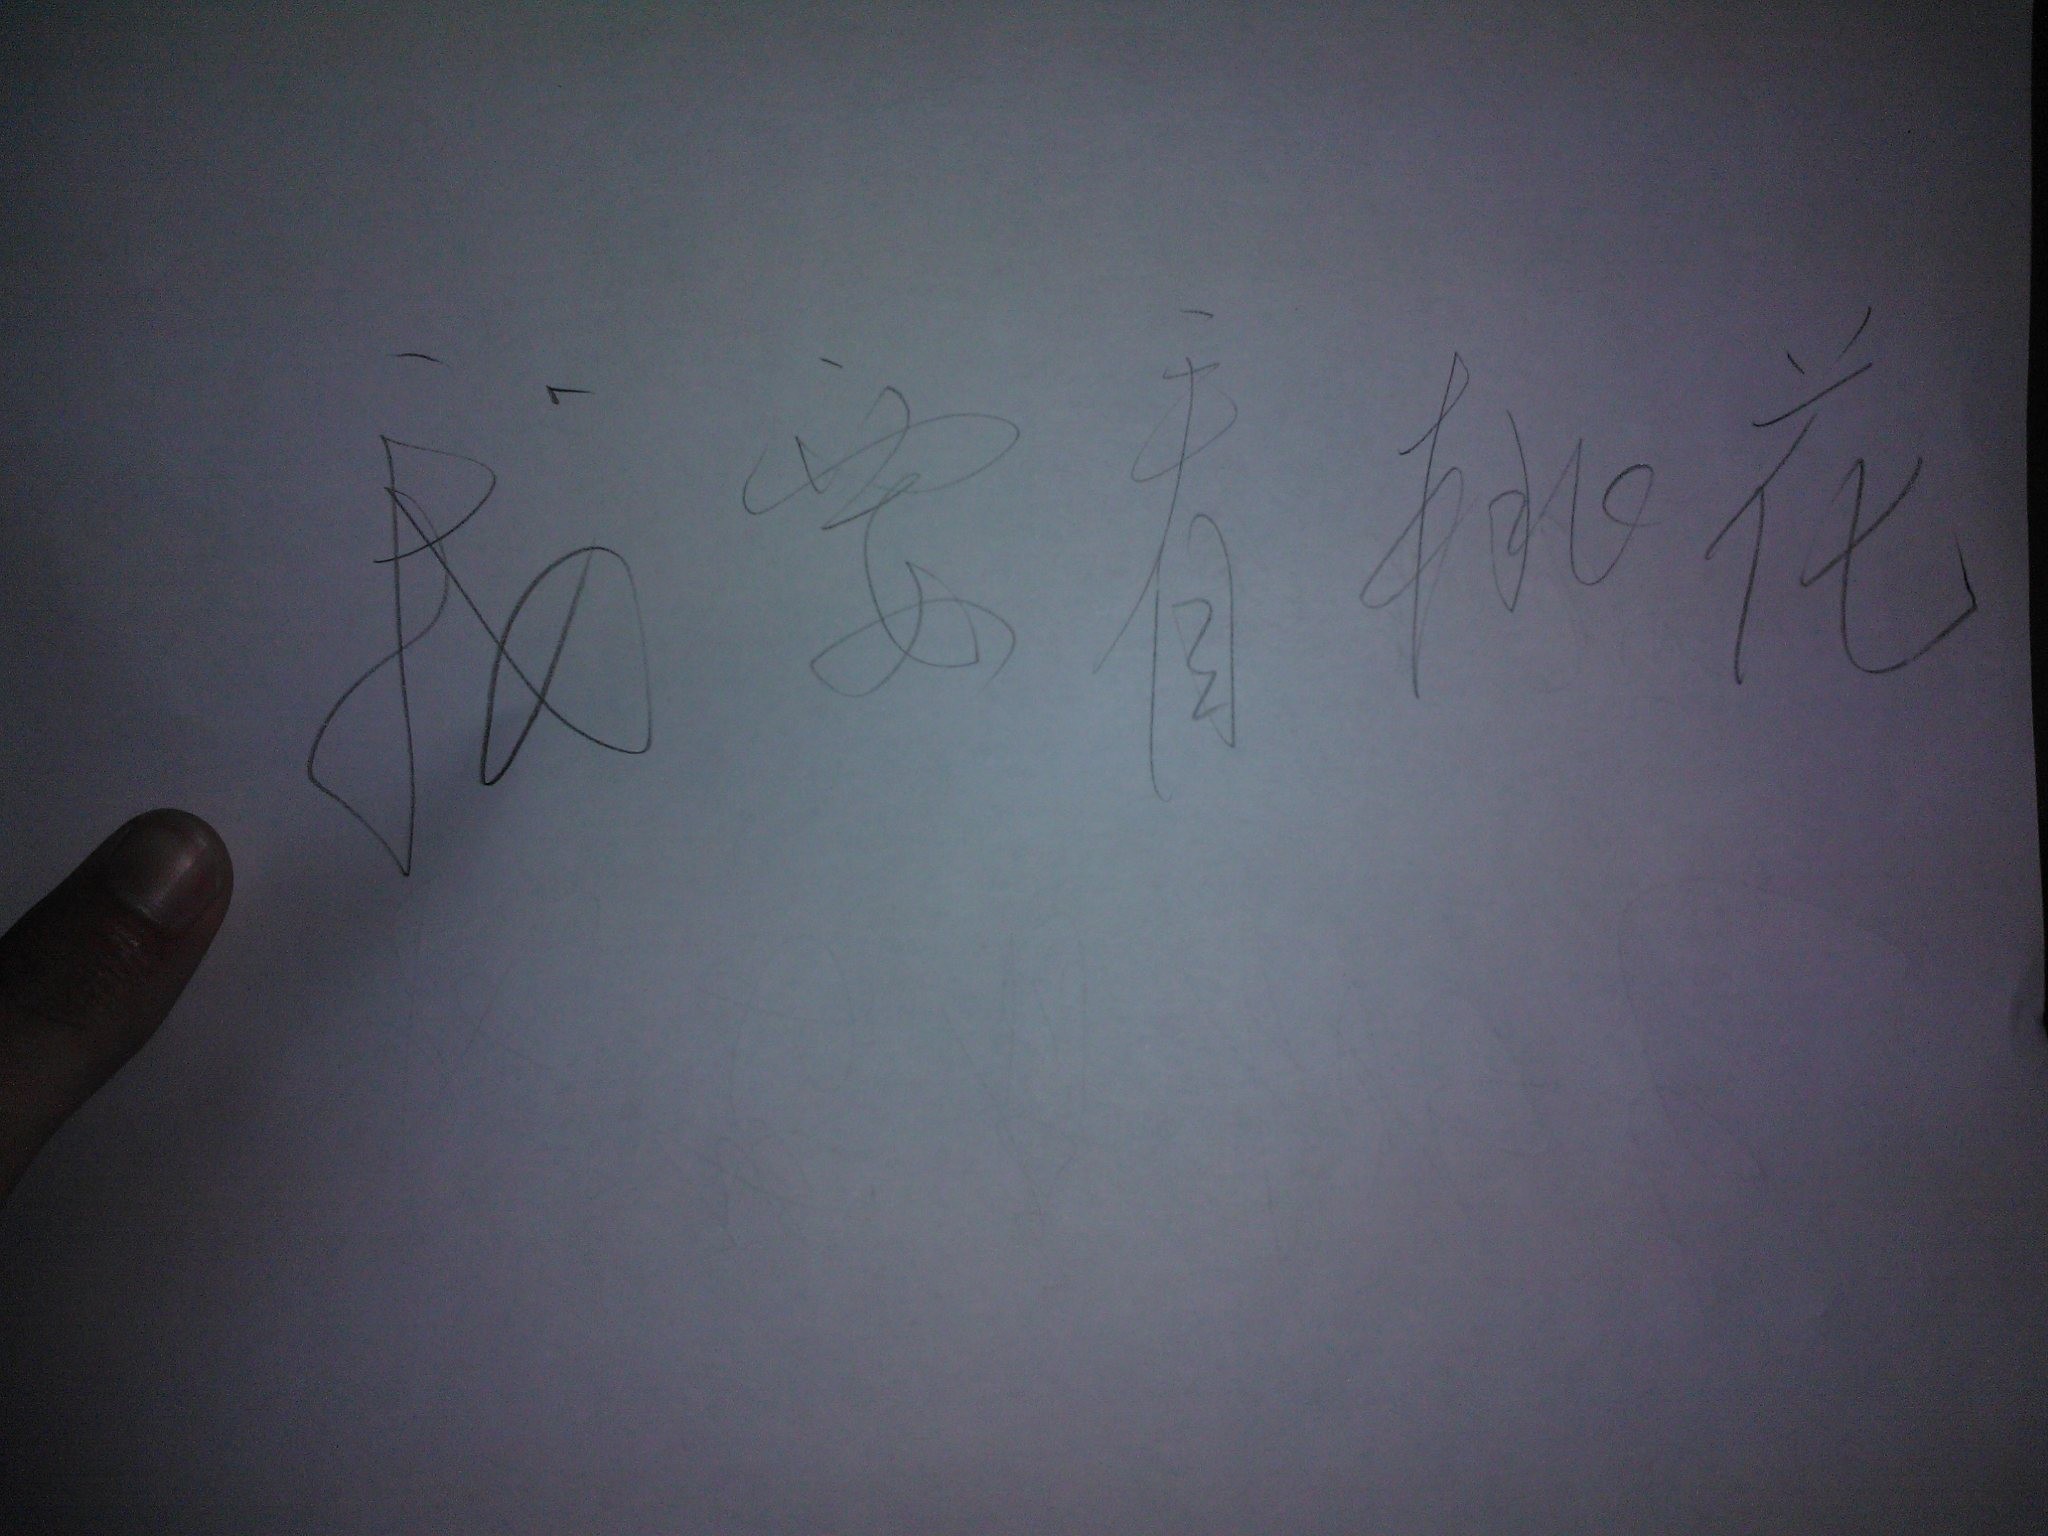 我要看桃花